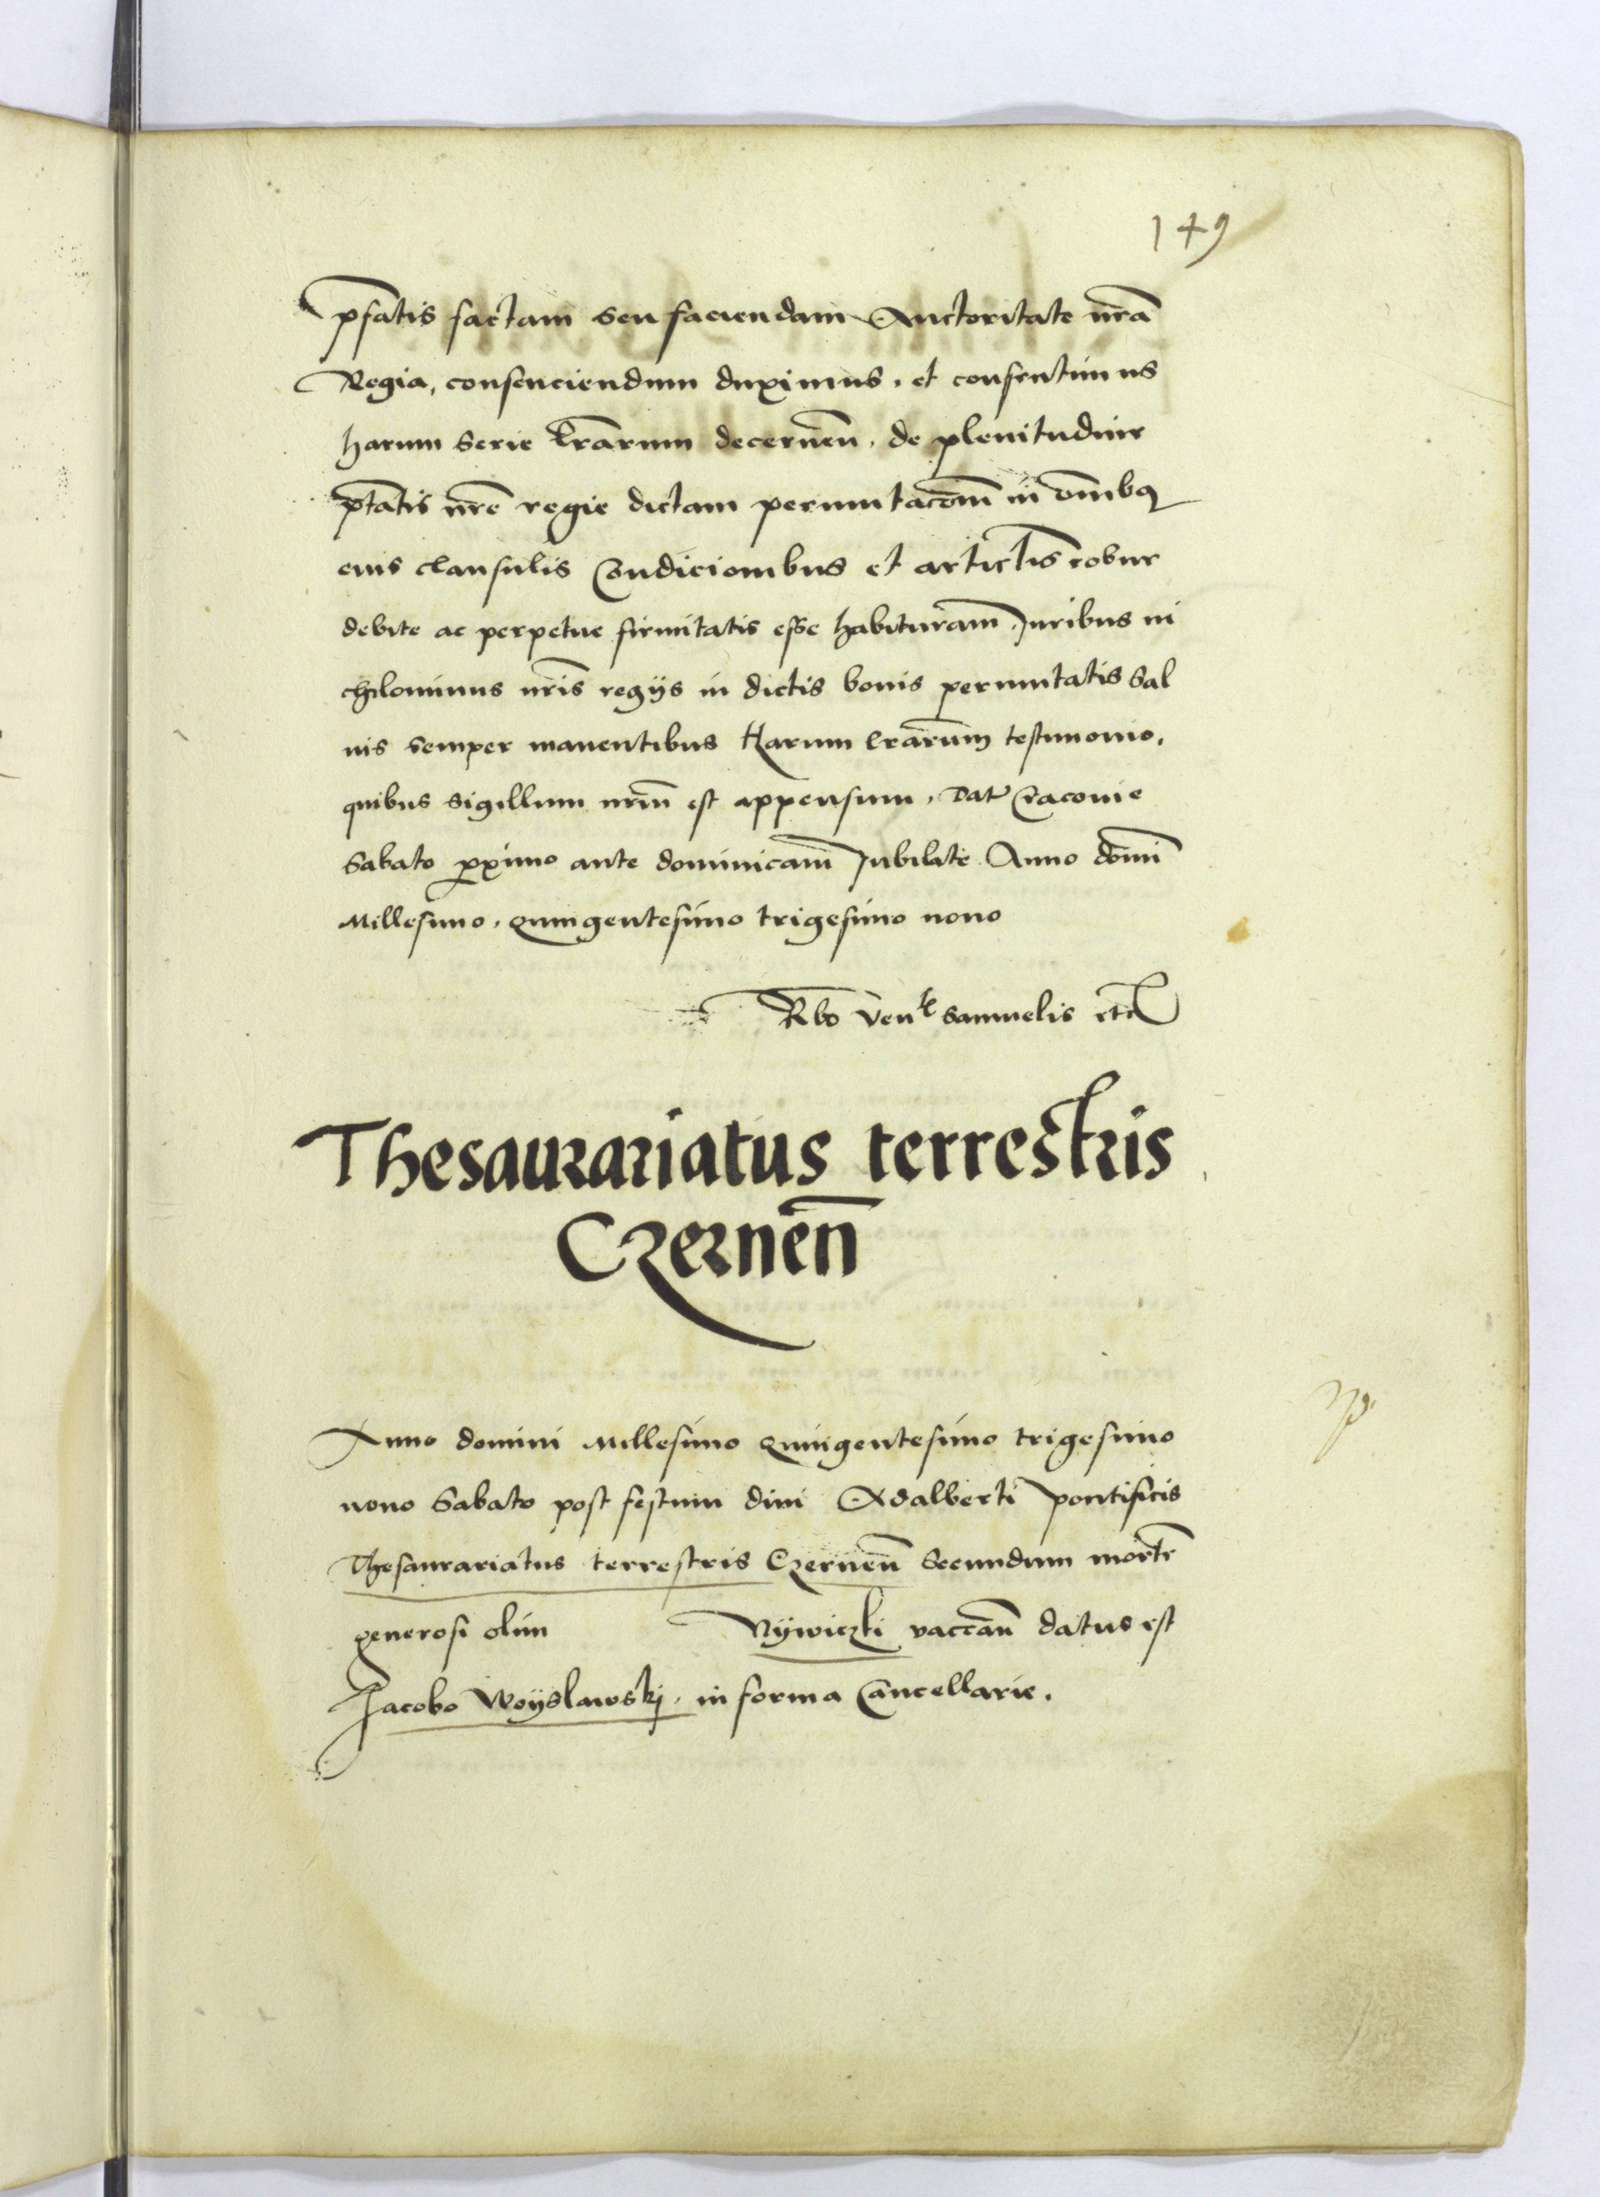 149
p̄fatis factam seu faciendam Auctoritate nrā
Regia, consenciendum duximus, et consentimus
harum serie lr̄arum decernen̄. de plenitudine
ptātis nrē regie dictam permutacōm in om̄ibq
eius clausulis Condicionibus et articl̄is robur
debite ac perpetue firmitatis esse habituram̄ Juribus ni
chilominus nrīs regÿs in dictis bonis permutatis sal
uis semper manentibus Harum lr̄arum testimonio,
quibus sigillum nrm̄ est appensum. Dat Cracouie
Sabato proximo ante dominicam̄ Jubilate Anno domī
Millesimo. Quingentesimo trigesimo nono
Rlo Ven̄ Samuelis etc
Thesaurariatus terrestris
Czernen̄
Anno domini Millesimo Quingentesimo trigesimo
nono Sabato post festum diui Adalberti pontificis
Thesaurariatus terrestris Czernen̄ Secundum mortē
generosi olim Nÿwiczki vacan̄ datus est
Jacobo Woÿslawskj. in forma Cancellarie.